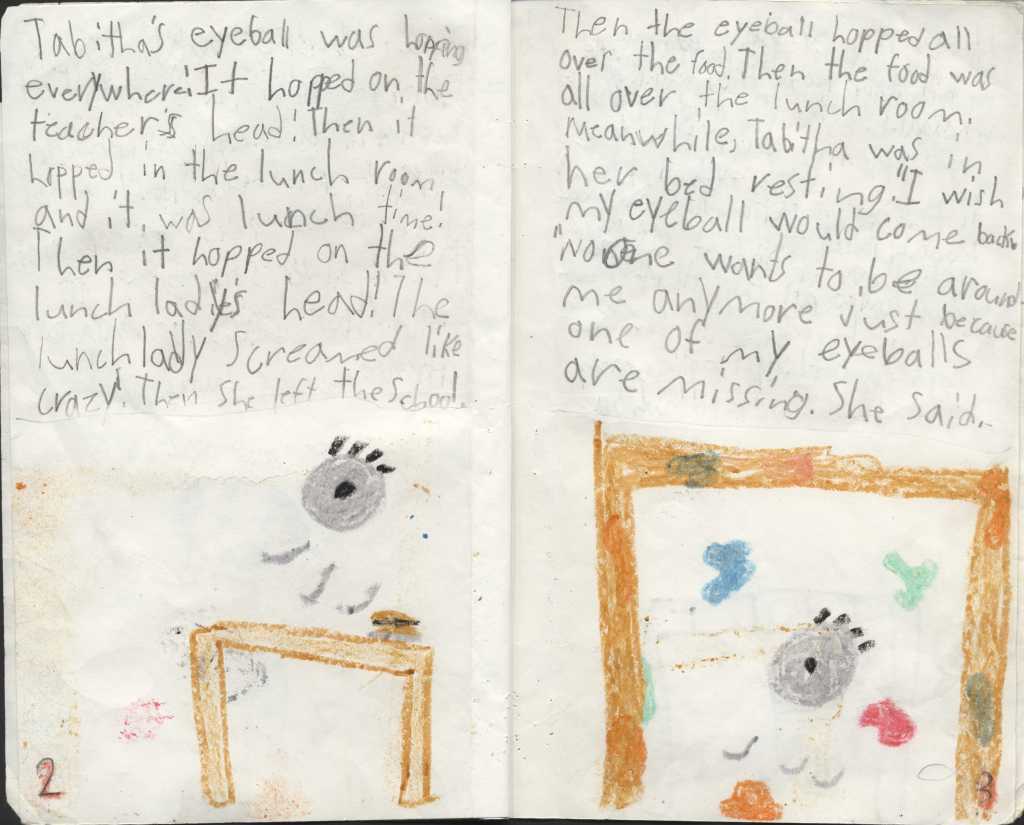 Tabitha's eyeball was hopping
everywhere! It hopped on the
teacher's head! Then it
hopped in the lunch room
and it was lunch time!
Then it hopped on the
lunch lady's head! The
lunch lady screamed like
crazy! Then she left the school.
2
Then the eyeball hopped all
over the food. Then the food was
all over the lunch room.
Meanwhile, Tabitha was in
her bed resting. "I wish
my eyeball would come back.
"No one wants to be around
me anymore just because
one of my eyeballs
are missing. She said.
3